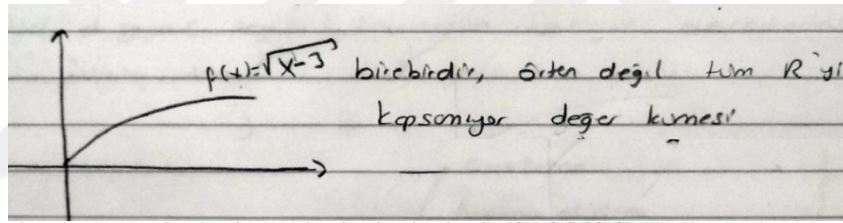 f(x)=√x-3 birebirdir, örten değil tüm R'yi
kapsamıyor değer kümesi